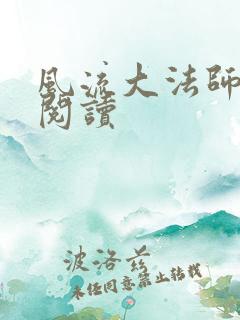 風流大法師
閱讀
波洛茲
未任同意禁止转载